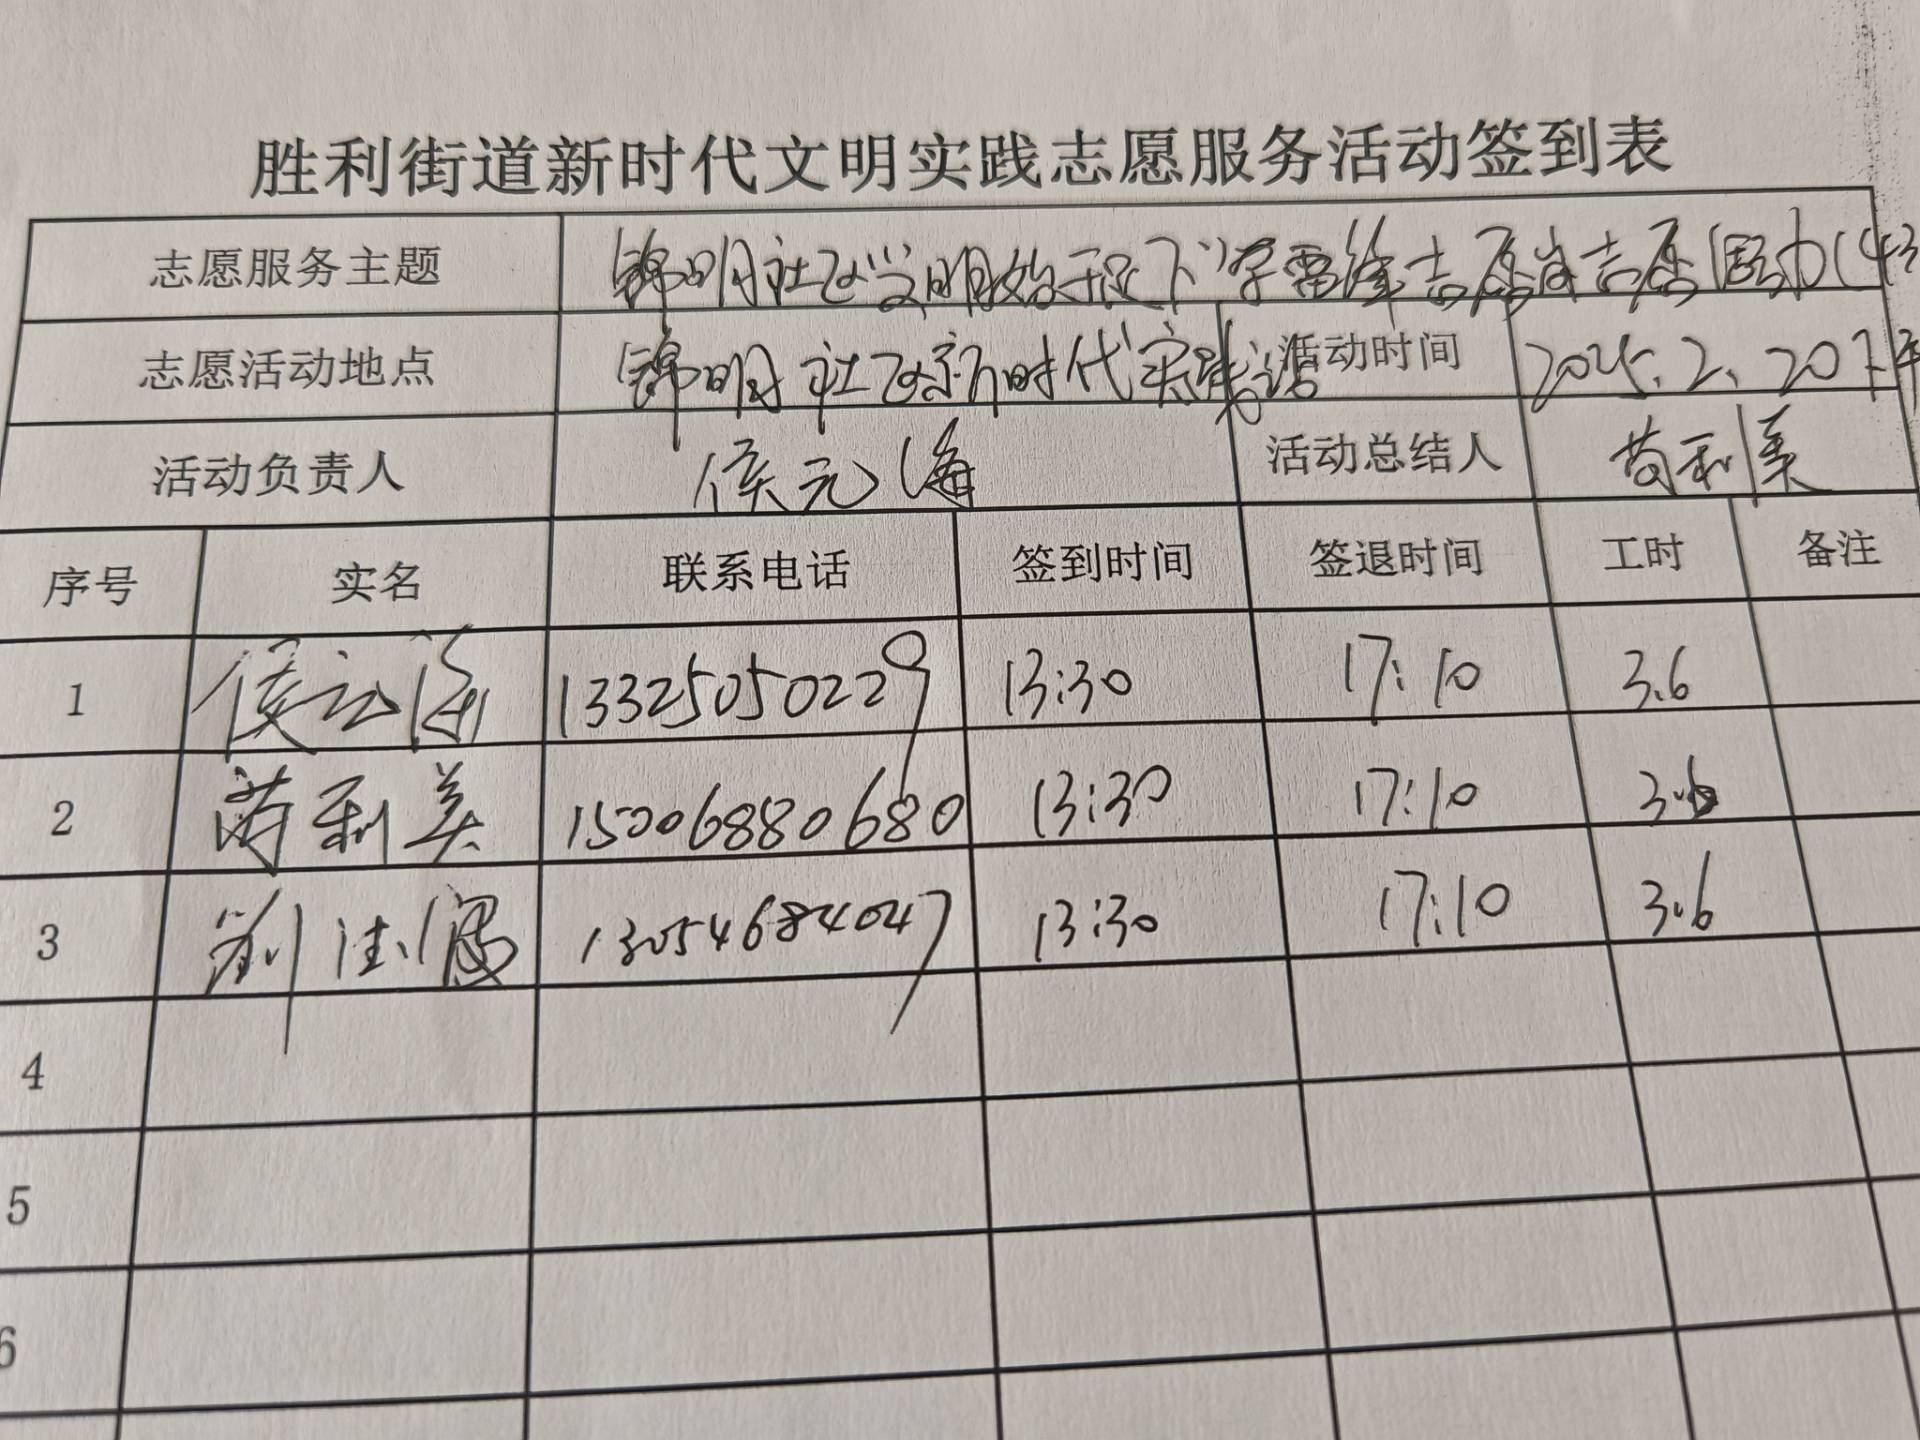 胜利街道新时代文明实践志愿服务活动签到表
志愿服务主题 锦明社区"文明始于足下"学雷锋志愿者志愿活动(43
志愿活动地点 锦明社区新时代实践站 活动时间 2025.2.20下午
活动负责人 侯元海 活动总结人 苟利美
序号 实名 联系电话 签到时间 签退时间 工时 备注
1 侯元海 13325050229 13:30 17:10 3.6
2 苟利美 15006880680 13:30 17:10 3.6
3 刘 13054684047 13:30 17:10 3.6
4
5
6